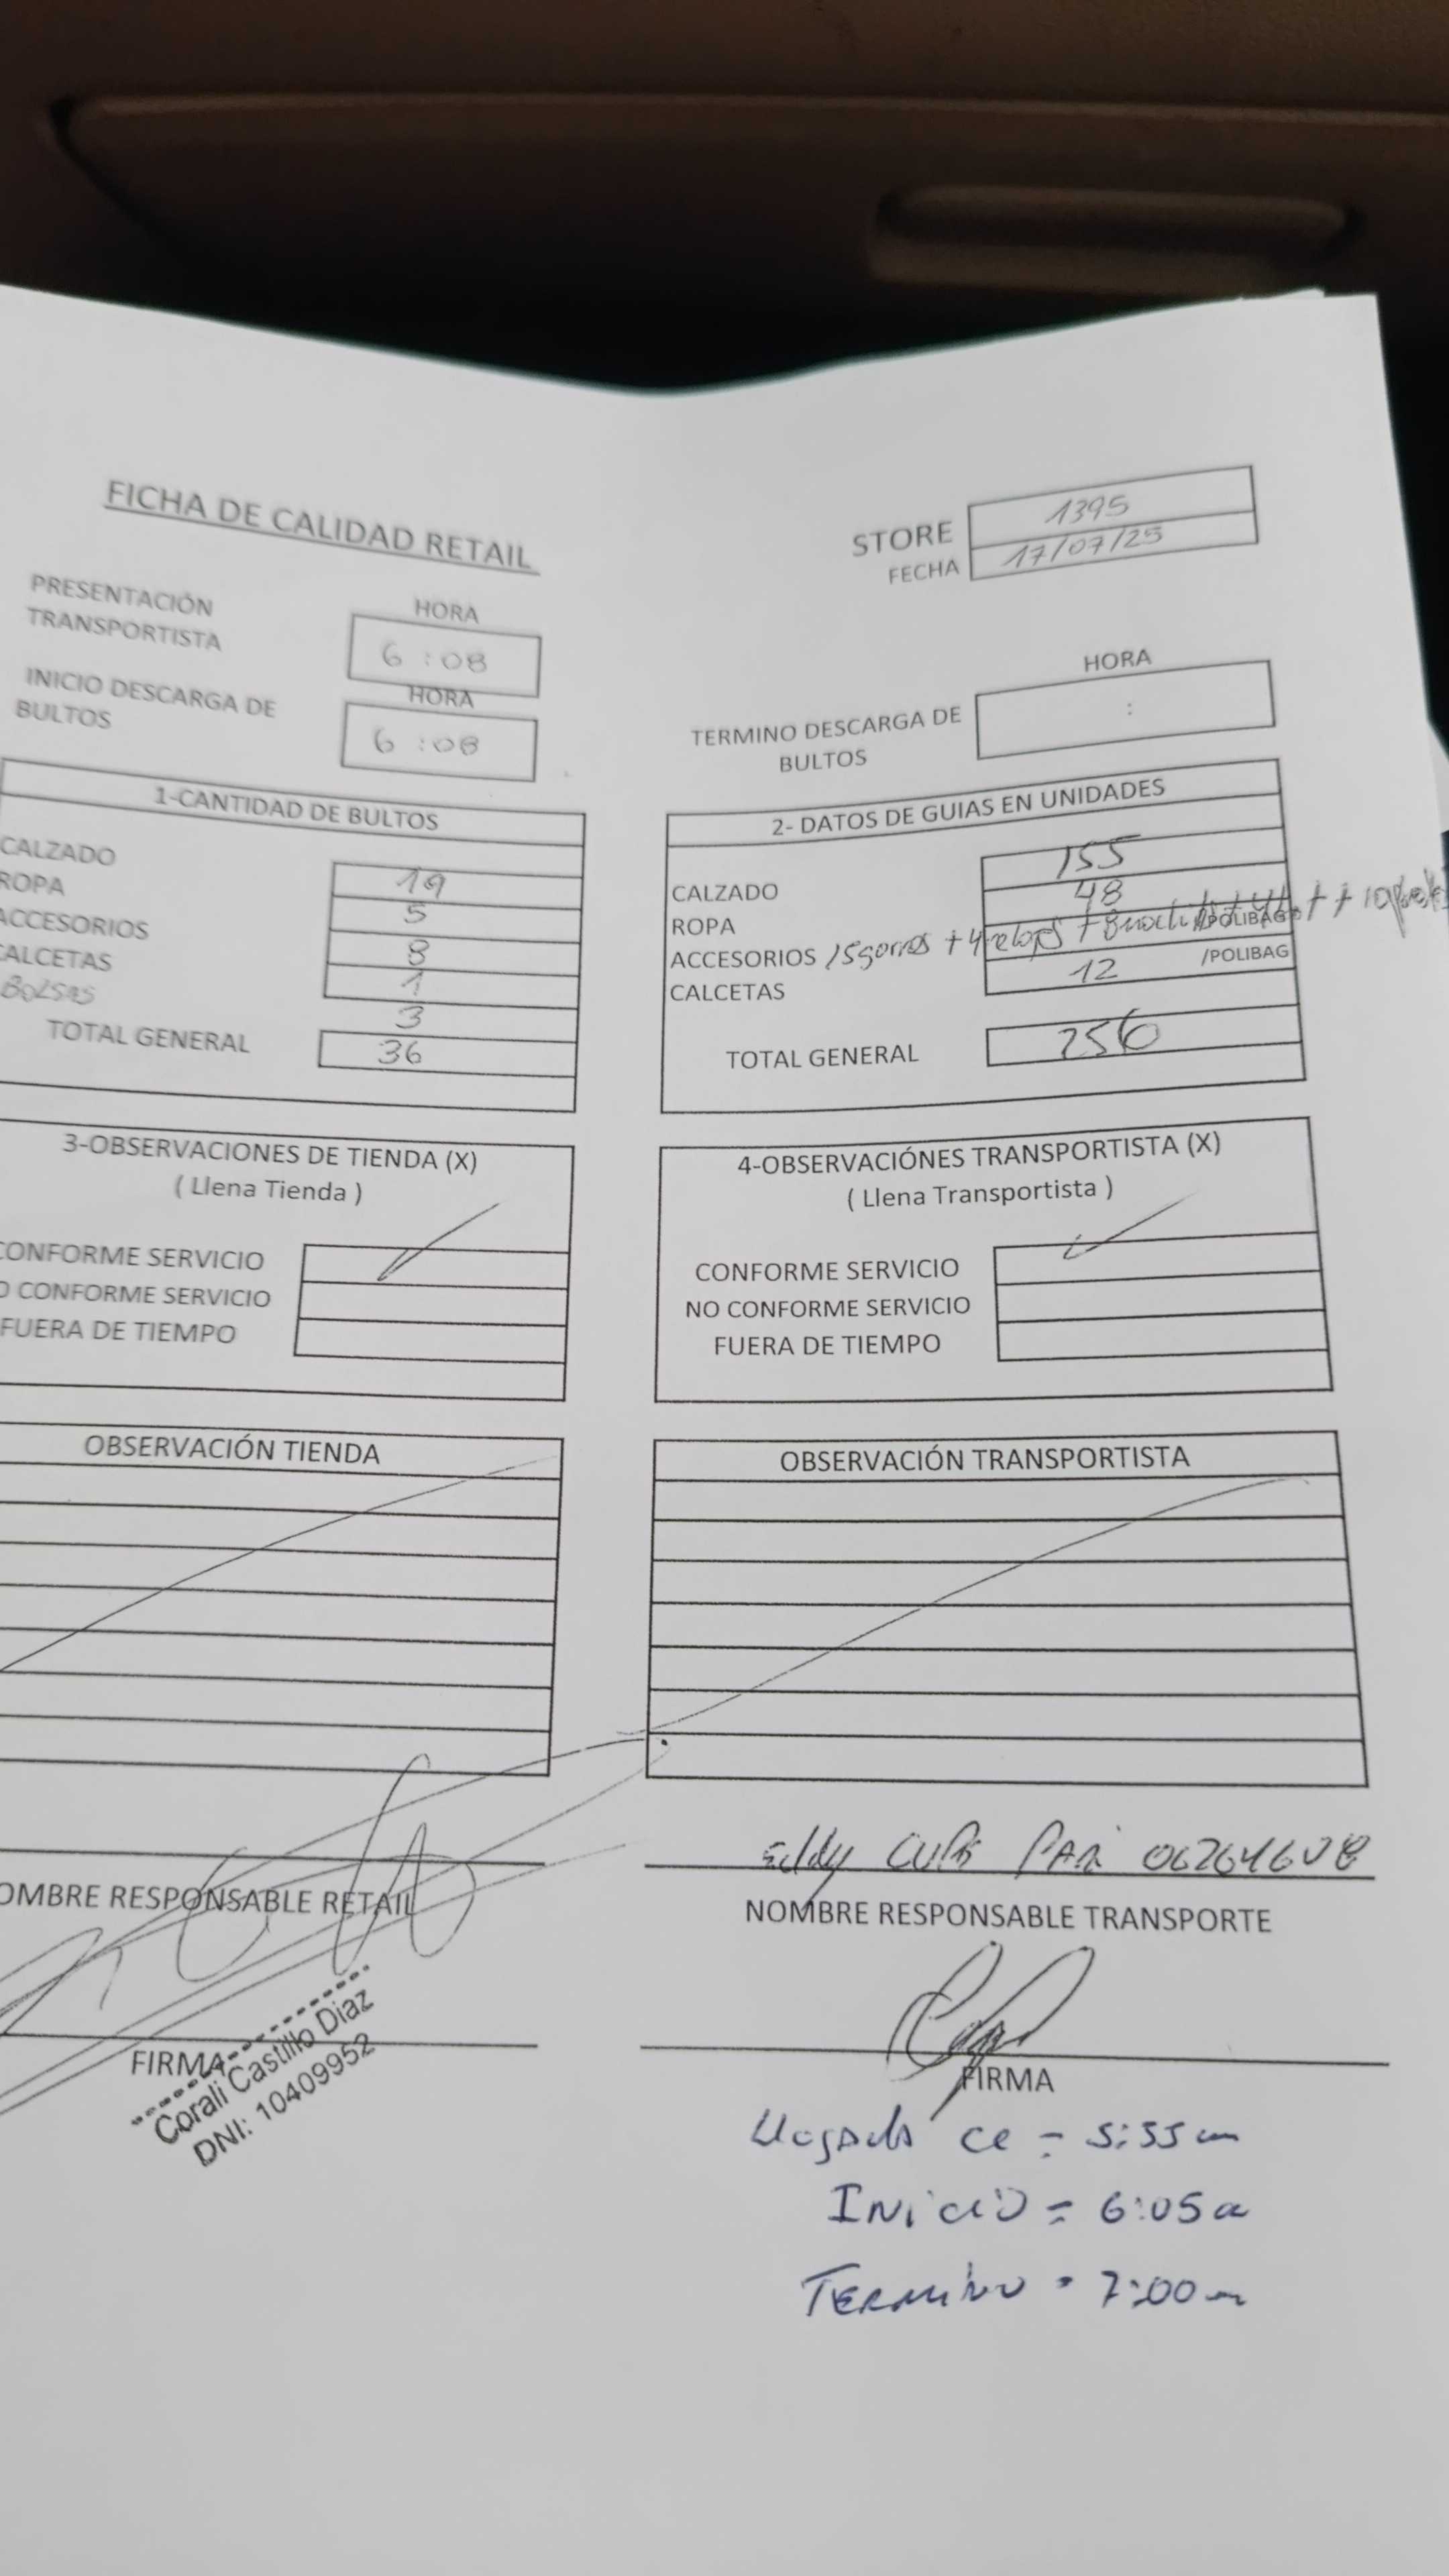 FICHA DE CALIDAD RETAIL
STORE 1395
FECHA 17/07/25
PRESENTACIÓN TRANSPORTISTA
HORA
6:08
INICIO DESCARGA DE BULTOS
HORA
6:08
TERMINO DESCARGA DE BULTOS
HORA
:
1-CANTIDAD DE BULTOS
CALZADO 19
ROPA 5
ACCESORIOS 8
CALCETAS 1
BOLSAS 3
TOTAL GENERAL 36
2- DATOS DE GUIAS EN UNIDADES
CALZADO 155
ROPA 48
ACCESORIOS 15 gorros + 4 relojs + 8 /POLIBAG
CALCETAS 12 /POLIBAG
TOTAL GENERAL 256
3-OBSERVACIONES DE TIENDA (X)
( Llena Tienda )
CONFORME SERVICIO
O CONFORME SERVICIO
FUERA DE TIEMPO
4-OBSERVACIÓNES TRANSPORTISTA (X)
( Llena Transportista )
CONFORME SERVICIO
NO CONFORME SERVICIO
FUERA DE TIEMPO
OBSERVACIÓN TIENDA
OBSERVACIÓN TRANSPORTISTA
OMBRE RESPONSABLE RETAIL
FIRMA
Corali Castillo Diaz
DNI: 10409952
Eddy
NOMBRE RESPONSABLE TRANSPORTE
FIRMA
Llegada ce = 5:55 am
Inicio = 6:05 a
Termino = 7:00